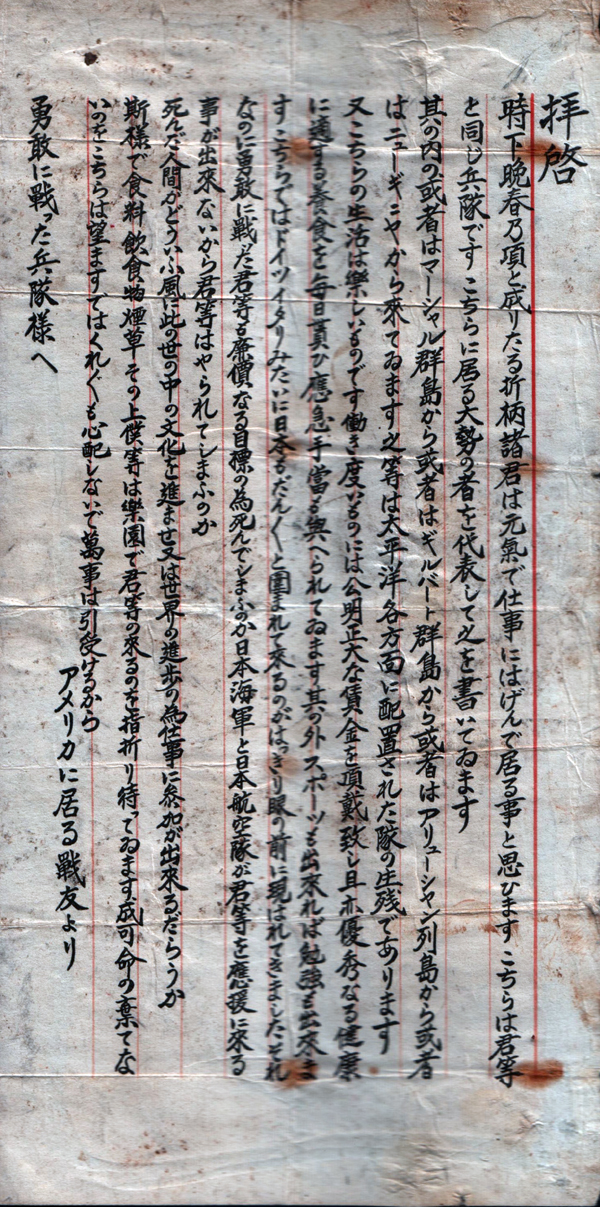 拝啓
時下晩春乃項と成りたる折柄諸君は元氣で仕事にはげんで居る事と思ひますこちらは君等
と同じ兵隊ですこちらに居る大勢の者を代表して之を書いてゐます
其の内の或者はマーシャル群島から或者はギルバート群島から或者はアリューシャン列島から或者
はニューギニヤから來てゐます之等は太平洋各方面に配置された隊の生残であります
又こちらの生活は樂しいものです働き度いものには公明正大な賃金を頂戴致し且亦優秀なる健康
に適する養食を毎日貰ひ應急手當も與へられてゐます其の外スポーツも出來れば勉強も出來ま
すこちらではドイツイタリみたいに日本もだん〱と圍まれて來るのがはっきり眼の前に現はれてきましたそれ
なのに勇敢に戰った君等も廉價なる目標の為死んでしまふのか日本海軍と日本航空隊が君等を應援に來る
事が出來ないから君等はやられてしまふのか
死んだ人間がどういふ風に此の世の中の文化を進ませ又は世界の進歩の為仕事に参加が出來るだらうか
斯様で食料飲食物煙草その上僕等は樂園で君等の來るのを指折り待ってゐます成可命の棄てな
いのをこちらは望ますてはくれ〲も心配しないで萬事は引受けるから
アメリカに居る戰友より
勇敢に戰った兵隊様へ